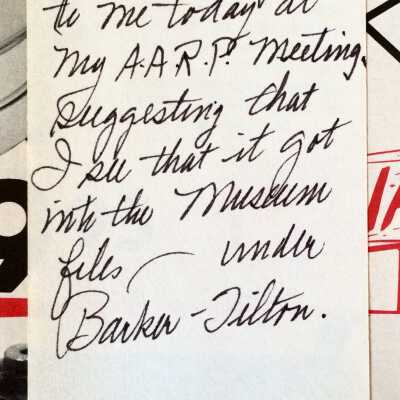 to me today at
my A.A.R.P. meeting,
suggesting that
I see that it got
into the Museum
files — under
Barker-Tilton.
9